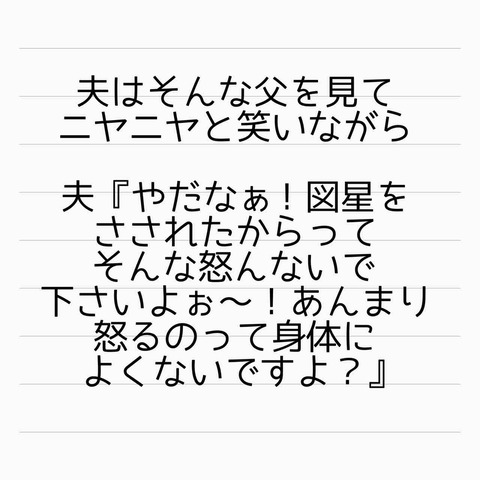 夫はそんな父を見て
ニヤニヤと笑いながら
夫『やだなぁ！図星を
さされたからって
そんな怒んないで
下さいよぉ〜！あんまり
怒るのって身体に
よくないですよ？』